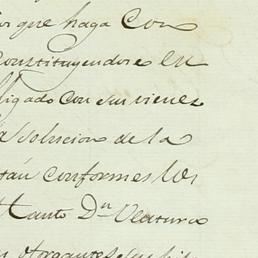 que haga con
constituyendose en
ligado con sus vienes
a solucion de la
tán conformes los
tanto Dn Ventura
otorgantes